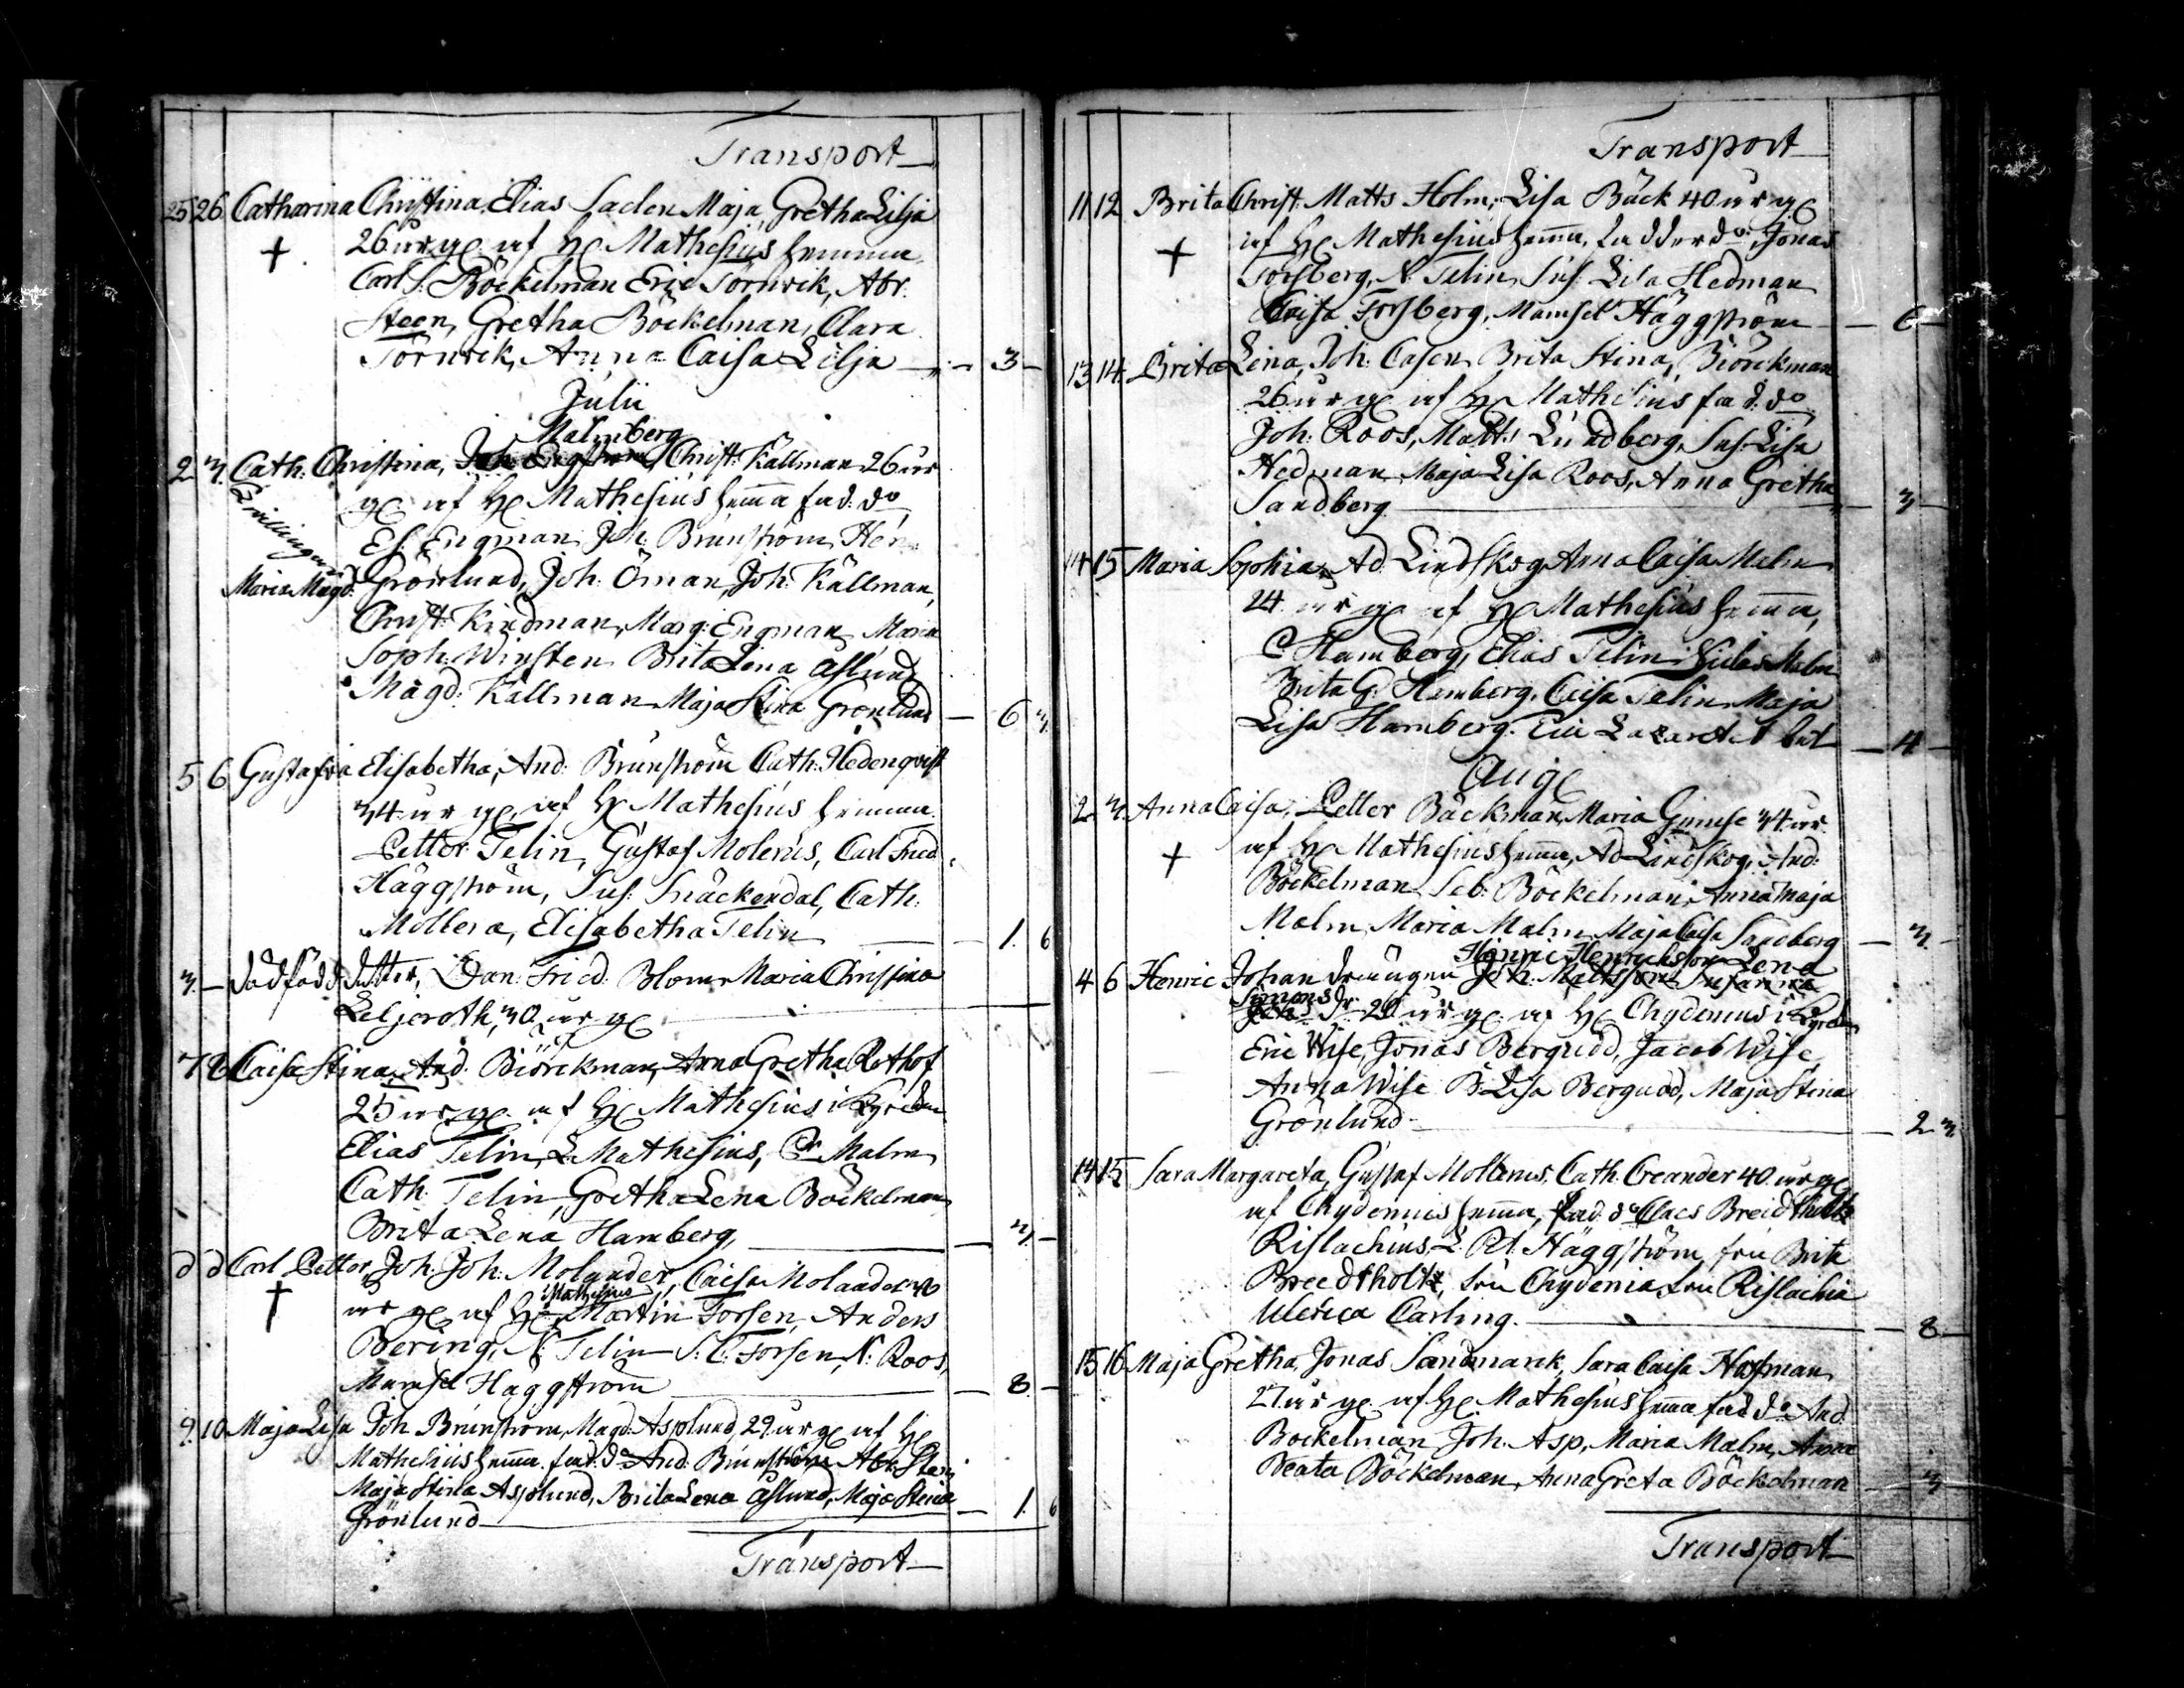 Transport
25 26 Catharina Christina, Elias Saclen Maja Gretha Lilja
26 år g. af H Mathesius hemma
Carl S. Böckelman Eric Törnvik, Abr.
Steen, Gretha Böckelman, Clara
Törnvik, Anna Caisa Lilja — 3 —
Julii
Malmberg
2 3 Cath. Christina, Joh. Engström Christ. Källman 26 år
g. af H Mathesius hemma fad. do
Tvillingar
Es. Engman, Joh. Brunström, Hen.
Maria Magd. Grönlund, Joh. Öman, Joh. Källman,
Christ. Kindman, Marg. Engman, Maria
Soph. Winsten Brita Lena Åslund
Magd. Källman Maja Stina Grönlund — 6 3
5 6 Gustafva Elisabetha, And. Brunström Cath. Hedenqvist
34 år g. af H Mathesius hemma
Petter Telin, Gustaf Molerus, Carl Fred.
Häggström, Sus. Snäckendal, Cath.
Mollera, Elisabetha Telin — 1. 6
3. — dödfödd dotter, Dan. Fried. Blom, Maria Christina
Leljeroth, 30 år g.
7 8 Caisa Stina, And. Biörckman, Anna Gretha Rothof
25 år g. af H Mathesius i Kyrckan
Elias Telin, L. Mathesius, Malm
Cath. Telin, Gretha Lena Böckelman,
Brita Lena Hamberg, — 3 —
d d Carl Petter, Joh. Joh. Molander, Caisa Molander 40
Mathesius
år g. af H Martin Forsen, Anders
Bering, N. Telin S. C. Forsen, N. Roos,
Mamsel Häggström — 8 —
9. 10 Maja Lisa Joh Brunström, Magd. Asplund, 29 år g af H
Mathesius hemma. fad. do And. Brunström Abr. Steen
Maja Stina Asplund, Brita Lena Åslund, Maja Stina
Grönlund — 1. 6
Transport
Transport
11 12 Brita Christ. Matts Holm, Lisa Bäck 40 år g
af H Mathesius hemma, do. Jonas
Forsberg, N. Telin, Sus. Lisa Hedman
Caisa Forsberg, Mamsel Häggström — 6 —
13 14 Brita Lena, Joh. Casen Brita Stina, Biörckman
26 år g. af H Mathesius fad. do
Joh. Roos, Matts Lundberg, Sus. Lisa
Hedman Maja Lisa Roos, Anna Gretha
Sandberg — 3 —
14 15 Maria Sophia, Ad. Lindskog Anna Caisa Malm
24 år g af H Mathesius hemma,
C Hamberg, Elias Telin, Malm
Brita G. Hamberg, Caisa Telin Maja
Lisa Hamberg. — 4 —
Aug
2 3 Anna Caisa, Petter Bäckman, Maria Gumse 34 år
af H Mathesius hemma, Ad Lindskog, And.
Böckelman Seb. Böckelman, Anna Maja
Malm, Maria Malm, Maja Caisa Sandberg — 3 —
Hinric Henricksson Lena
4 6 Henric Johan drängen Joh. Mattsson Susanna
Simons
dr 20 år g. af H Chydenius i Kyrckan
Eric Wise, Jonas Berqudd, Jacob Wise,
Anna Wise B. Lisa Berqudd, Maja Stina
Grönlund — 2 3
14 15 Sara Margareta, Gustaf Mollerus, Cath. Creander 40 år g
af Chydenius hemma, fad. do Claes Breidtholtz
Rislachius, L. Pet. Häggström, fru Brita
Breedtholtz, fru Chydenia, fru Rislachia
Ulerica Carling. — 8 —
15 16 Maja Gretha, Jonas Sandmarck, Sara Caisa Hofman
27 år g. af H Mathesius hemma fad do And.
Bockelman Joh. Asp, Maria Malm, Anna
Beata Böckelman, Anna Greta Böckelman — 3 —
Transport